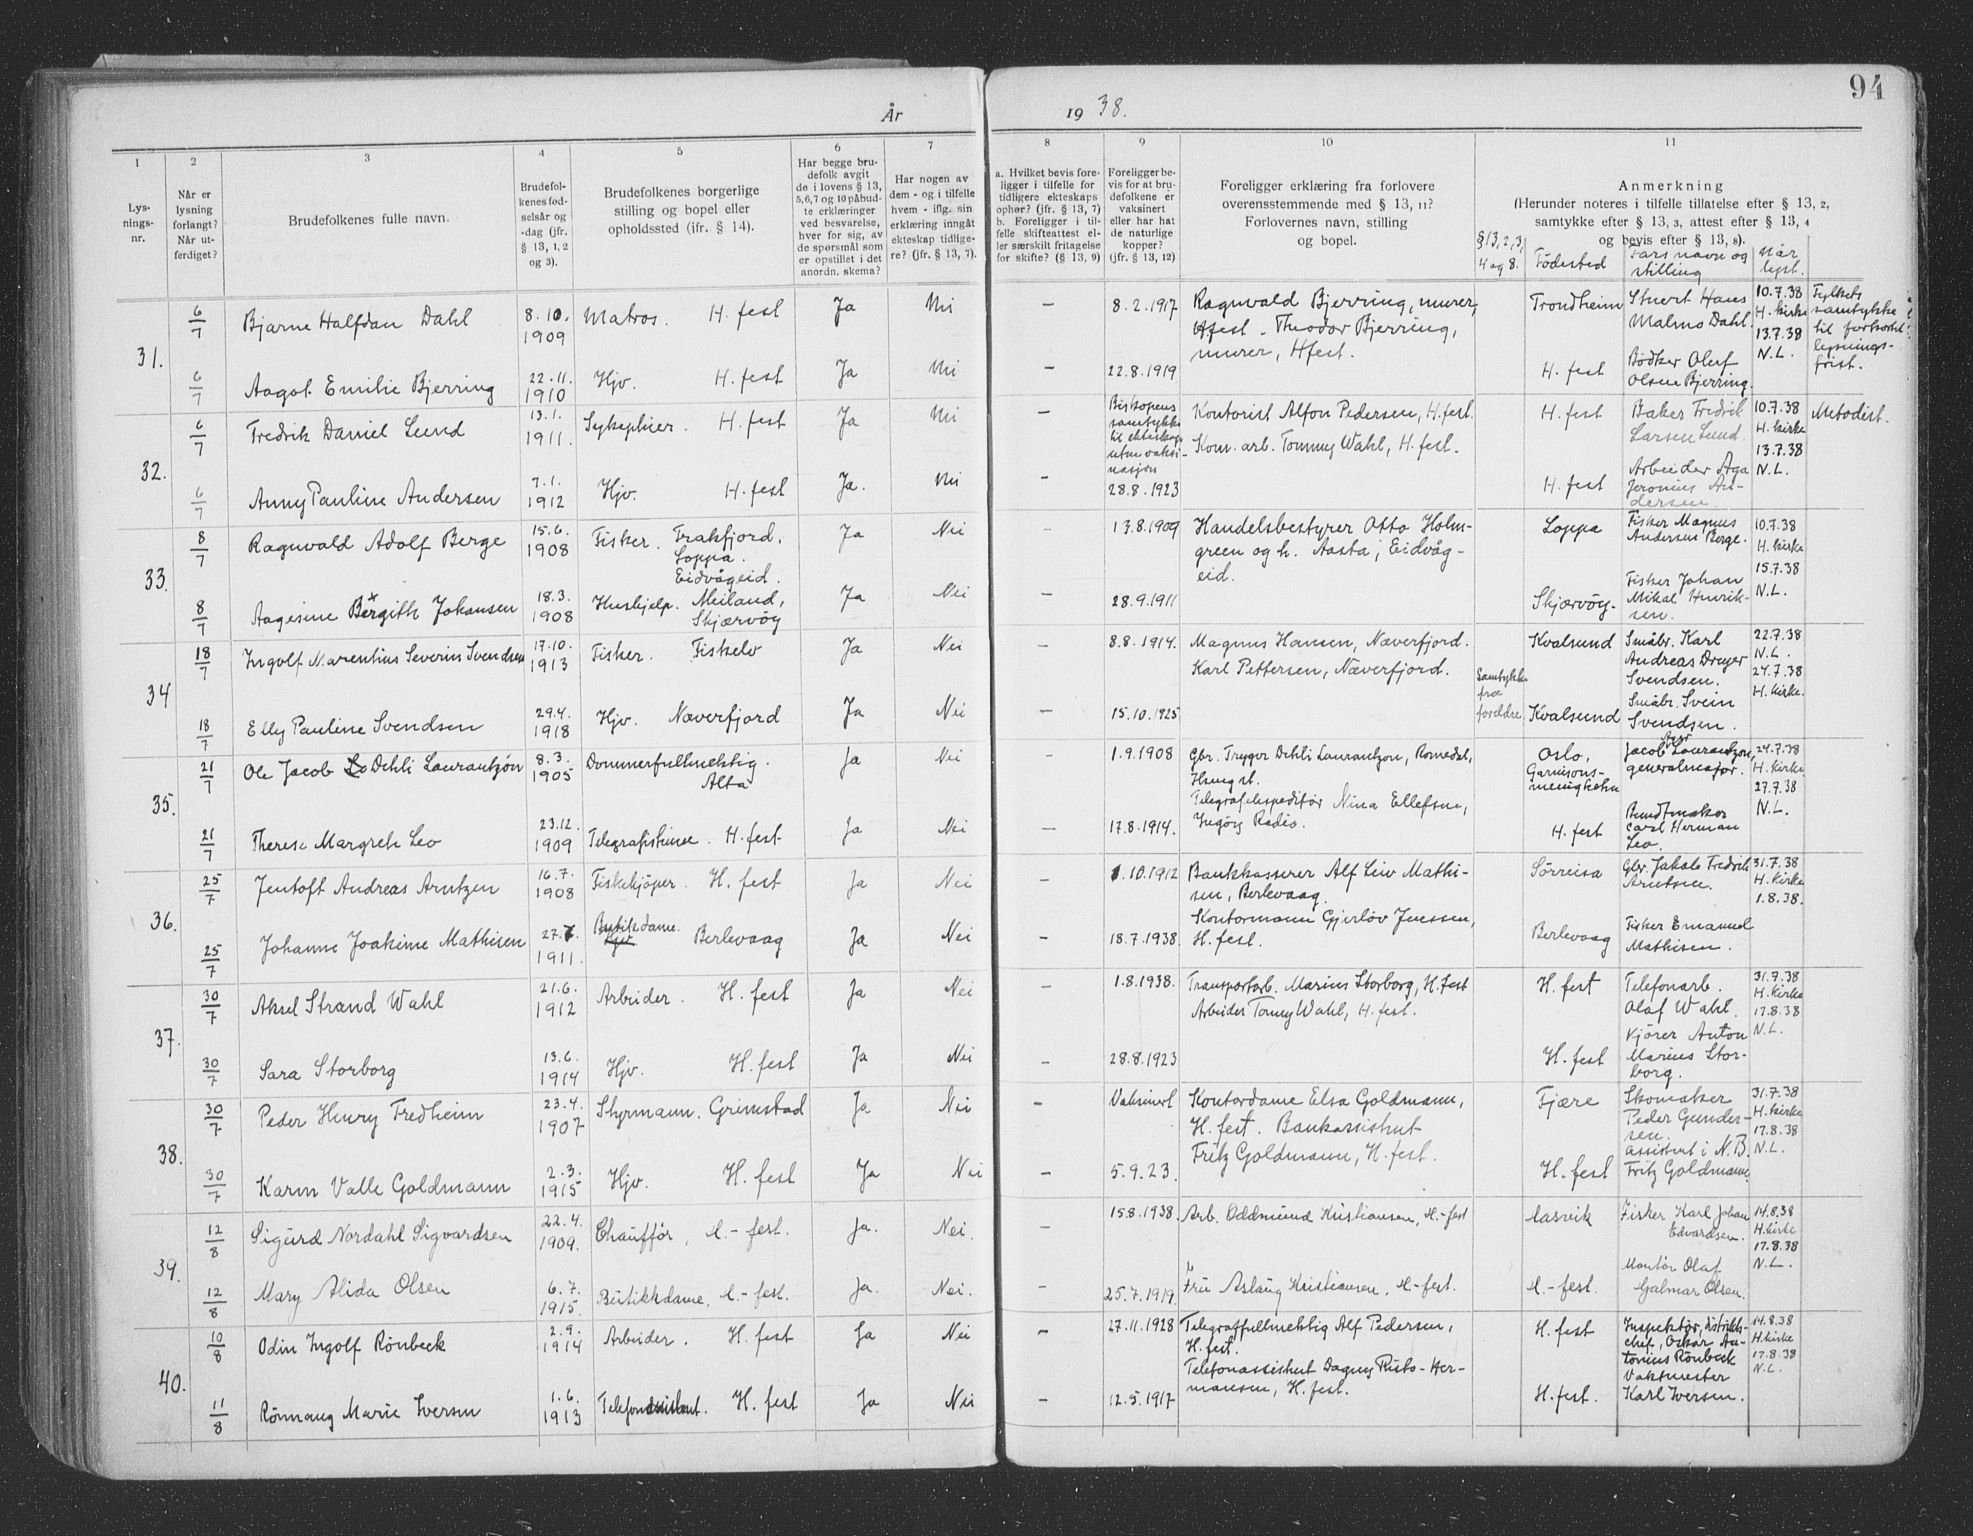 94
År 1938.
1 2 3 4 5 6 7 8 9 10 11
Lys-
nings-
nr.
Når er
lysning
forlangt?
Når ut-
ferdiget?
Brudefolkenes fulle navn.
Brudefol-
kenes fød-
selsår og
-dag (jfr.
§ 13, 1, 2
og 3).
Brudefolkenes borgerlige
stilling og bopel eller
opholdssted (ifr. § 14).
Har begge bru-
defolk avgit
de i lovens § 13,
5,6,7 og 10 påbud-
te erklæringer
ved besvarelse,
hver for sig, av
de spørsmål som
er opstillet i det
anordn. skema?
Har nogen av
dem - og i tilfelle
hvem - iflg. sin
erklæring inngått
ekteskap tidlige-
re? (jfr. § 13, 7).
a. Hvilket bevis fore-
ligger i tilfelle for
tidligere ekteskaps
ophør? (jfr. § 13, 7)
b. Foreligger i til-
felle skifteattest el-
ler særskilt fritagelse
for skifte? (§ 13, 9)
Foreligger be-
vis for at bru-
defolkene er
vaksinert
eller har hat
de naturlige
kopper?
(jfr. § 13, 12)
Foreligger erklæring fra forlovere
overensstemmende med § 13, 11?
Forlovernes navn, stilling
og bopel.
Anmerkning
(Herunder noteres i tilfelle tillatelse efter § 13, 2,
samtykke efter § 13, 3, attest efter § 13, 4
og bevis efter § 13, 8).
§ 13, 2, 3,
4 og 8.
Fødested
Fars navn og
stilling
Når
lyst.
31.
6/7 Bjarne Halfdan Dahl 8.10. 1909 Matros. H. fest Ja Nei — 8.2.1917
Ragnvald Bjerring, murer,
Hfest - Theodor Bjerring,
murer, Hfest.
Trondheim
Stuert Hans
Malmo Dahl.
10.7.38
H. kirke
13.7.38
N.L.
Fylkets
samtykke
til forkortet
lysnings-
frist.
6/7 Aagot Emilie Bjerring 22.11. 1910 Hjv. H. fest Ja Nei — 22.8.1919
H. fest
Bødker Oluf
Olsen Bjerring.
32.
6/7 Fredrik Daniel Lund 13.1. 1911. Sykepleier. H. fest Ja Nei —
Biskopens
samtykke
til ekteskap
uten vaksi-
nasjon
Kontorist Alfon Pedersen, H. fest.
Kom. arb. Tommy Wahl, H. fest.
H. fest
Baker Fredrik
Larsen Lund.
10.7.38
H. kirke
13.7.38
N.L.
Metodist.
6/7 Anny Pauline Andersen 7.1. 1912 Hjv. H. fest Ja. Nei — 28.8.1923
H. fest
Arbeider Aga
Jeronius An-
dersen.
33.
8/7 Ragnvald Adolf Berge 15.6. 1908 Fisker. Frakfjord,
Loppa.
Ja Nei — 13.8.1909
Handelsbestyrer Otto Holm-
green og h. Aasta, Eidvåg-
eid.
Loppa
Fisker Magnus
Andersen Berge.
10.7.38
H. kirke
15.7.38
N.L.
8/7 Aagesine Bergith Johansen 18.3. 1908 Eidvågeid.
Hushjelp. Meiland,
Skjærvøy
Ja Nei — 28.9.1911
Skjærvøy
Fisker Johan
Mikal Henrik-
sen.
34
18/7 Ingolf Marentius Severin Svendsen 17.10. 1913 Fisker. Fiskelv Ja Nei — 8.8.1914.
Magnus Hansen, Næverfjord.
Karl Pettersen, Næverfjord.
Kvalsund
Småbr. Karl
Andreas Dreyer
Svendsen.
22.7.38
N.L.
24.7.38
H. kirke.
18/7 Elly Pauline Svendsen 29.4. 1918 Hjv. Næverfjord Ja Nei — 15.10.1925
Samtykke
fra
foreldre.
Kvalsund
Småbr. Svein
Svendsen.
35.
21/7 Ole Jacob Lo Dehli Laurantzon 8.3. 1905 Dommerfullmektig.
Alta
Ja Nei 1.9.1908
Gbr. Trygve Dehli Laurantzon, Romedal,
Hamar st.
Telegrafekspeditør Nina Ellefsen,
Ingøy Radio.
Oslo,
Garnisons-
menigheten
Jacob Laurantzon,
generalmajor.
24.7.38
H. kirke
27.7.38
N.L.
21/7 Therese Margreth Leo 23.12. 1909 Telegrafistinne. H. fest Ja Nei — 17.8.1914.
H. fest
Buntmaker
Carl Herman
Leo.
36.
25/7 Jentoft Andreas Arntzen 16.7. 1908 Fiskekjøper. H. fest Ja Nei — 1.10.1912
Bankkasserer Alf Leiv Mathi-
sen, Berlevaag.
Kontormann Gjerløv Jnessen,
H. fest.
Sørreisa
Gbr. Jakob Fredrik
Arntsen.
31.7.38
H. kirke
1.8.38.
25/7 Johanne Joakime Mathisen 27.7. 1911. Butikdame.
Hjv
Berlevaag Ja Nei — 18.7.1938.
Berlevaag
Fisker Emanuel
Mathisen.
37.
30/7 Aksel Strand Wahl 21.6. 1912 Arbeider. H. fest Ja Nei — 1.8.1938.
Transportarb. Marius Storborg, H. fest
Arbeider Tommy Wahl, H. fest.
H. fest
Telefonarb.
Olaf Wahl.
31.7.38
H. kirke
17.8.38
N.L.
30/7 Sara Storborg 13.6. 1914 Hjv. H. fest Ja Nei — 28.8.1923
H. fest
Kjører Anton
Marius Stor-
borg.
38.
30/7 Peder Henry Fredheim 23.4. 1907 Styrmann. Grimstad Ja Nei — Vaksinert
Kontordame Elsa Goldmann,
H. fest. Bankassistent
Fritz Goldmann, H. fest.
Fjære
Skomaker
Peder Gunder-
sen.
31.7.38
H. kirke
17.8.38
N.L.
30/7 Karin Valle Goldmann 2.3. 1915 Hjv. H. fest Ja Nei — 5.9.23.
H. fest
assistent i N.B.
Fritz Goldmann.
39.
12/8 Sigurd Nordahl Sigvardsen 22.4. 1909. Chaufför, H.-fest. Ja. Nei. — 15.8.1938.
Arb. Oddmund Kristiansen, H.-fest
Masvik
Fisker Karl Johan
Edvardsen.
14.8.38
H. kirke
17.8.38
N.L.
12/8 Mary Alida Olsen 6.7. 1915. Butikkdame, H.-fest. Ja. Nei. — 25.7.1919.
Fru Aslaug Kristiansen, H.-fest.
H.-fest.
Montør Olaf
Galmar Olsen.
40.
10/8 Odin Ingolf Rönbeck 2.9. 1914 Arbeider. H. fest Ja Nei — 27.11.1928
Telegraffullmektig Alf Pedersen,
H. fest.
Telefonassistent Dagny Ruts-Her-
mansen, H. fest.
H. fest
Inspektør, distrikts-
chef, Oskar An-
tonius Rönbeck
14.8.38
H. kirke
17.8.38
N.L.
11/8 Rönnaug Marie Iversen 1.6. 1913 Telefonassistent. H. fest Ja Nei — 12.5.1917
H. fest.
Vaktmester
Karl Iversen.